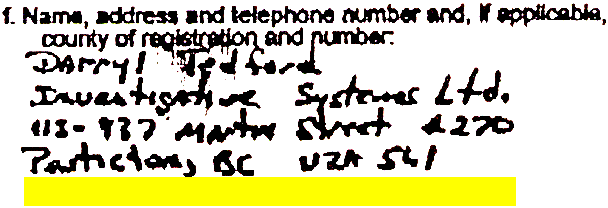 f. Name, address and telephone number and, if applicable,
county of registration and number:
Darryl Tedford
Investigative Systems Ltd.
113-437 Martin Street #270
Penticton, BC V2A 5L1